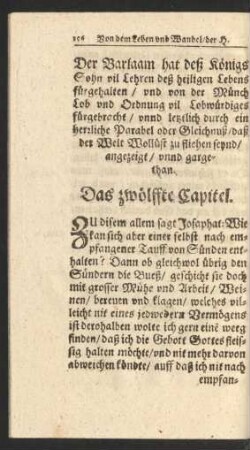 108 Von dem Leben vnd Wandel / der H.
Der Barlaam hat deß Königs
Sohn vil Lehren deß heiligen Lebens
fürgehalten / vnd von der Münch
Lob vnd Ordnung vil Lobwürdiges
fürgebracht / vnnd letzlich durch ein
herzliche Parabel oder Gleichnuß / daß
der Welt Wollüst zu fliehen seynd /
angezeigt / vnnd darge-
than.
Das zwölffte Capitel.
ZU disem allem sagt Josaphat: Wie
kan sich aber einer selbst nach em-
pfangener Tauff von Sünden ent-
halten? Dann ob gleichwol übrig den
Sündern die Bueß / geschicht sie doch
mit grosser Mühe vnd Arbeit / Wei-
nen / bereuen vnd klagen / welches vil-
leicht nit eines jedwedern Vermögens
ist derohalben wolte ich gern eine weeg
finden / daß ich die Gebott Gottes fleis-
sig halten möchte / vnd nit mehr darvon
abweichen köndte / auff daß ich nit nach
empfan-